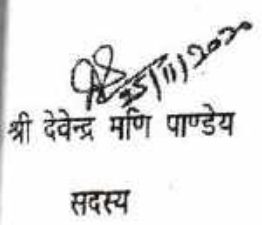 25/11/2020
श्री देवेन्द्र मणि पाण्डेय
सदस्य